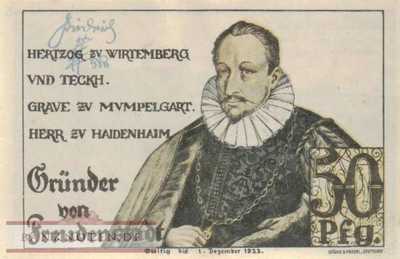 Friedrich
HERTZOG ZV WIRTEMBERG
VND TECKH.
GRAVE ZV MVMPELGART.
HERR ZV HAIDENHAIM
Gründer
von
Freudenstadt
50
Pfg.
Gültig bis 1. Dezember 1922.